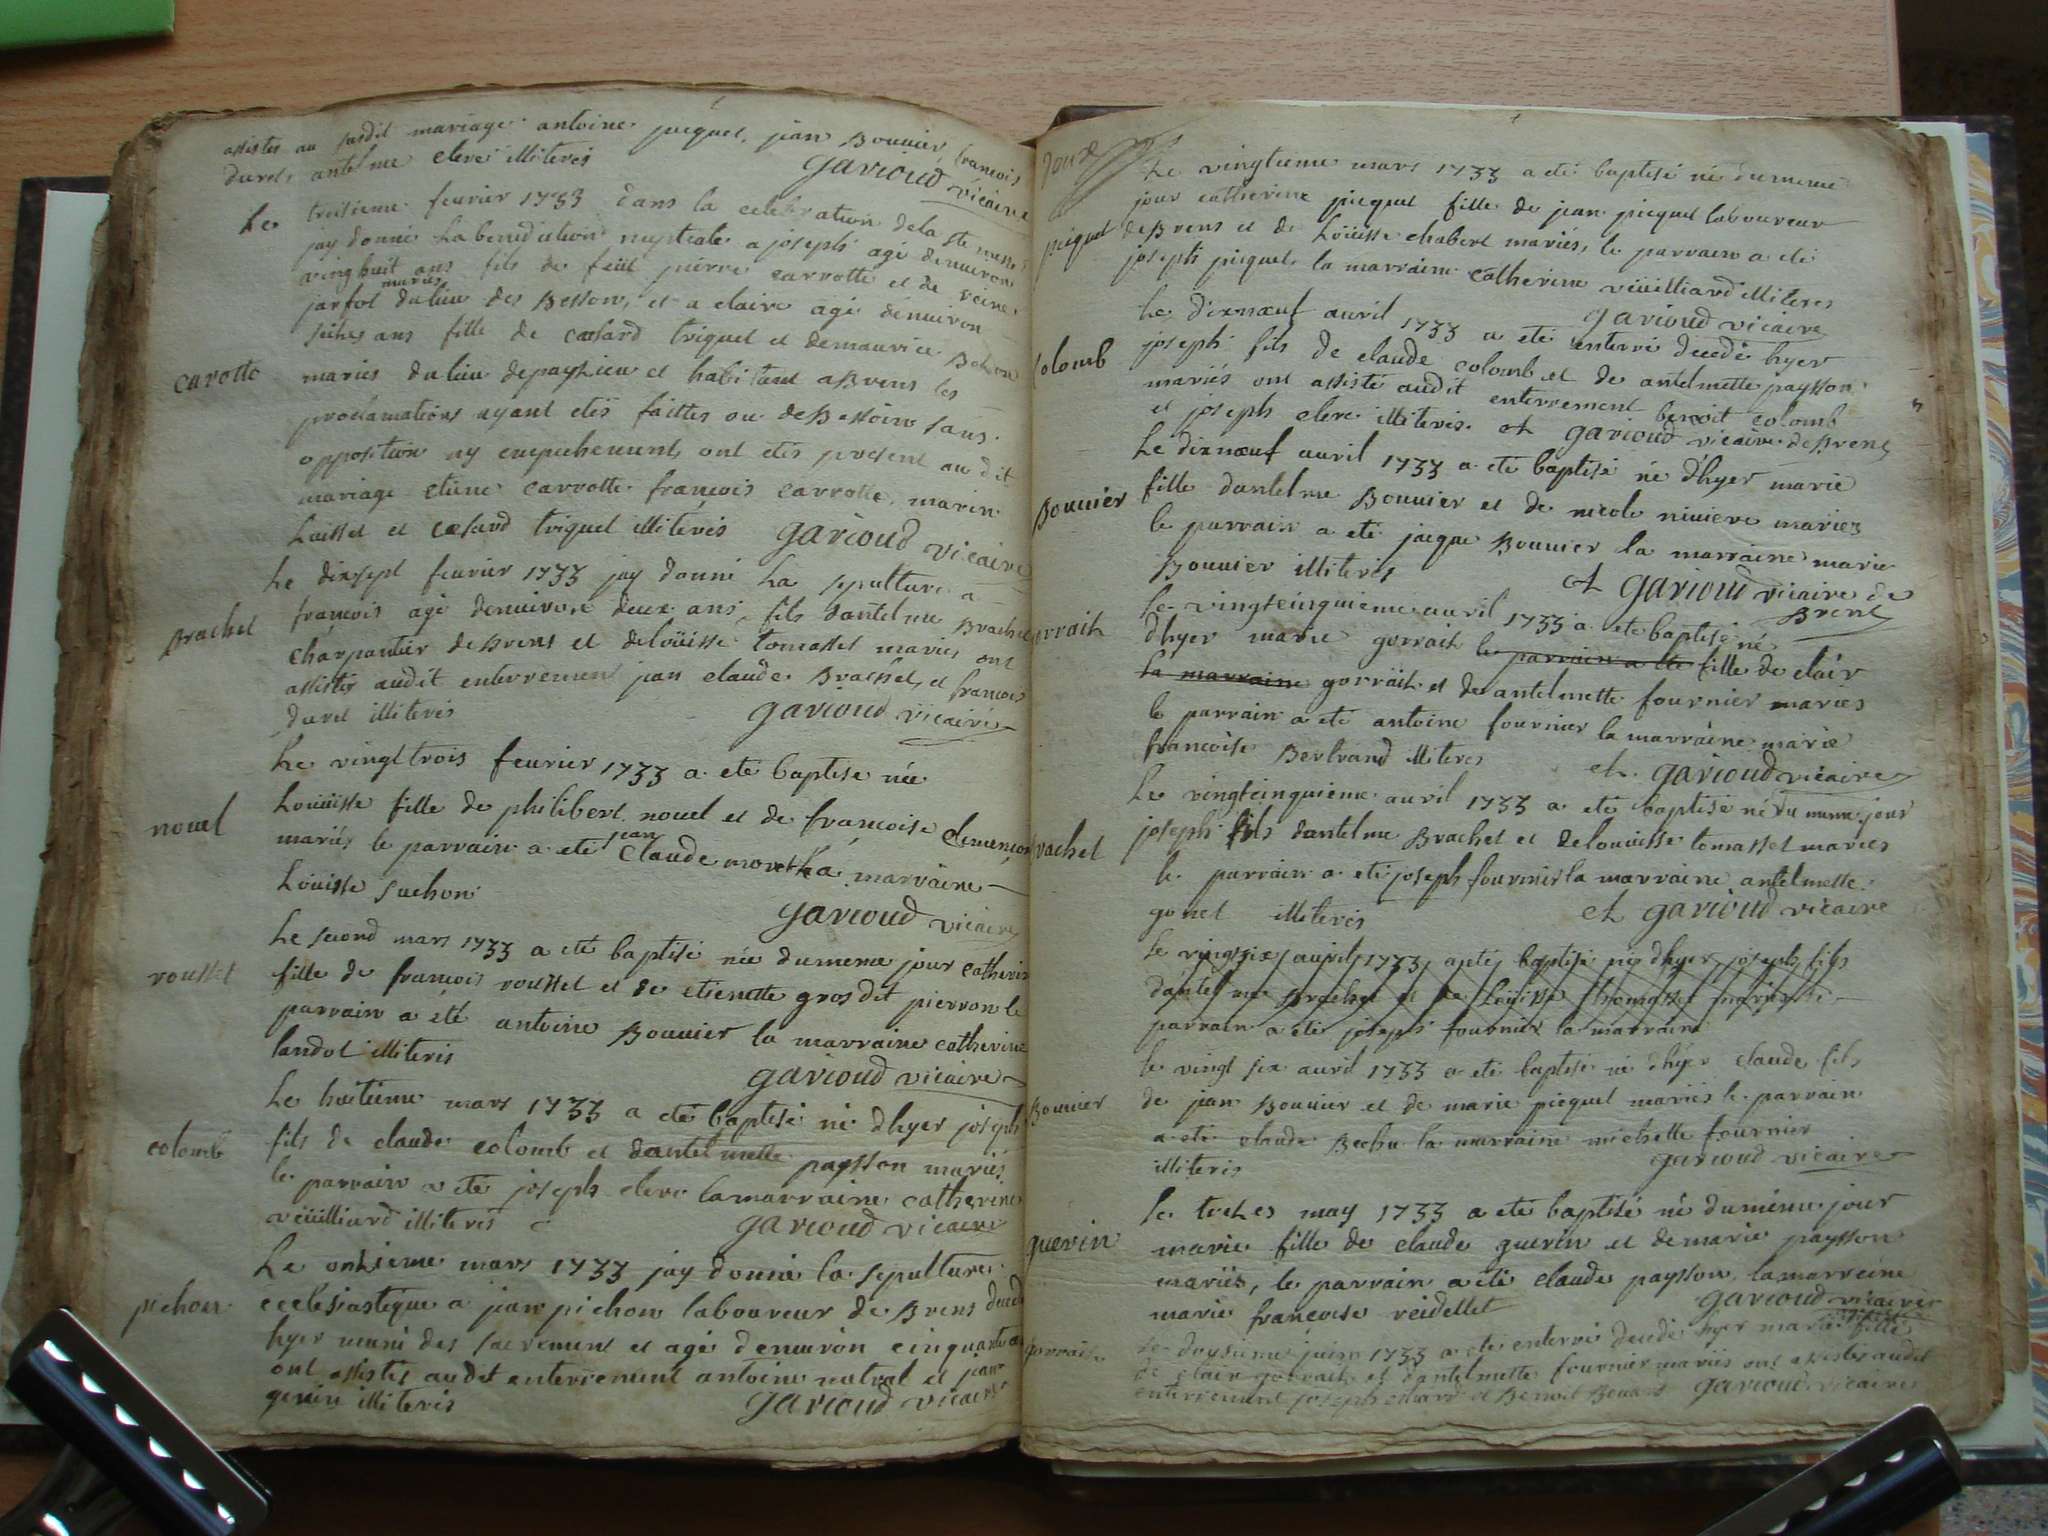 assistes au susdit mariage antoine picquet, jean Bouuier, francois
duret, antelme clerc illiteres
garioud vicaire
Le troisieme feurier 1733 dans la celebration de la ste messe
jay donné La benediction nuptiale a joseph agé denuiron
vinghuit ans fils de feüt pierre carrotte et de reine
jarfot mariés du lieu des Besson, et a claire agé denuiron
seihes ans fille de cæsard triquet et demaurice
carotte
mariés du lieu depayzieu et habitant a Brens les
proclamations ayant etés faittes ou de Bessoin sans
opposition ny empechement, ont etés present au dit
mariage etiene carrotte francois carrotte, marin
Luisset et cæsard triquet illiteris garioud vicaire
Le dixsept feurier 1733 jay donné La sepulture a
Brachet
francois agé denuiron deux ans, fils dantelme Brachet
charpantier deBrens et deloüisse tomasset mariés ont
assistés audit enterrement jean claude Brachet, et francois
duret illiteris garioud vicaire
Le vingttrois feurier 1733 a eté baptisé née
nouel
Louüisse fille de philibert nouel et de francoise clemencon
mariés le parrain a eté jean claude moret La marraine
Loüisse suchon
garioud vicaire
Le second mars 1733 a eté baptisé née dumeme jour catherine
rousset
fille de francois rousset et de etienette gros dit pierron le
parrain a eté antoine Bouuier la marraine catherine
landot illiteris
garioud vicaire
Le huitieme mars 1733 a eté baptisé né dhyer joseph
colomb
fils de claude colomb et dantelmette paysson mariés
le parrain a eté joseph clerc lamarraine catherine
veüilliard illiteris
garioud vicaire
Le onzieme mars 1733 jay donné la sepulture
pichon
ecclesiastique a jean pichon laboureur de Brens decedé
hyer muni des sacrement et agé denuiron cinquante ans
ont assistes audit enterrement antoine nutral et jean
genin illiteris
garioud vicaire
Le vingtieme mars 1733 a eté baptisé né dumeme
jour catherine picquet fille de jean picquet laboureur
picquet
deBrens et de Loüisse chabert mariés, le parrain a eté
joseph picquet, la marraine catherine veüilliard illiteres
garioud vicaire
Le dixnœuf auril 1733 a eté enterré decedé hyer
colomb
joseph fils de claude colomb et de antelmette paysson
mariés ont assisté audit enterrement benoit colomb
et joseph clerc illiteris. et garioud vicaire de Brens
Le dixnœuf auril 1733 a eté baptisé né dhyer marie
Bouuier
fille dantelme Bouuier et de nicole niuiere mariez
le parrain a eté jacque Bouuier la marraine marie
Bouuier illiteris
et garioud vicaire de
Brens
le vingtcinquieme auril 1733 a eté baptisé né
gorrait
dhyer marie gorrait le parrain a eté fille de clair
la marraine gorrait et de antelmette fournier mariés
le parrain a eté antoine fournier la marraine marie
francoise Bertrand illiteres et garioud vicaire
Le vingtcinquieme auril 1733 a eté baptisé né du meme jour
Brachet
joseph fils dantelme Brachet et delouuisse tomasset mariés
le parrain a eté joseph fournier la marraine antelmette
gonet illiteris et garioud vicaire
le vingtsix auril 1733 a eté baptisé né dhyer joseph fils
dantelme Brachet et de Loüisse thomasset mariés le
parrain a eté joseph fournier la marraine
le vingt six auril 1733 a eté baptisé né dhyer claude fils
Bouuier
de jean Bouuier et de marie picquet mariés le parrain
a eté claude Bechu la marraine michelle fournier
illiteris
garioud vicaire
le trezes may 1733 a eté baptisé né dumême jour
guerin
marie fille de claude guerin et demarie paysson
mariés, le parrain a eté claude paysson, lamarreine
marie francoise reidellet
garioud vicaire
gorrait
Le douzieme juin 1733 a eté enterré decedé hyer marie fille
de clair gorrait et dantelmette fournier mariés ont assistés audit
enterrement joseph et Benoit garioud vicaire